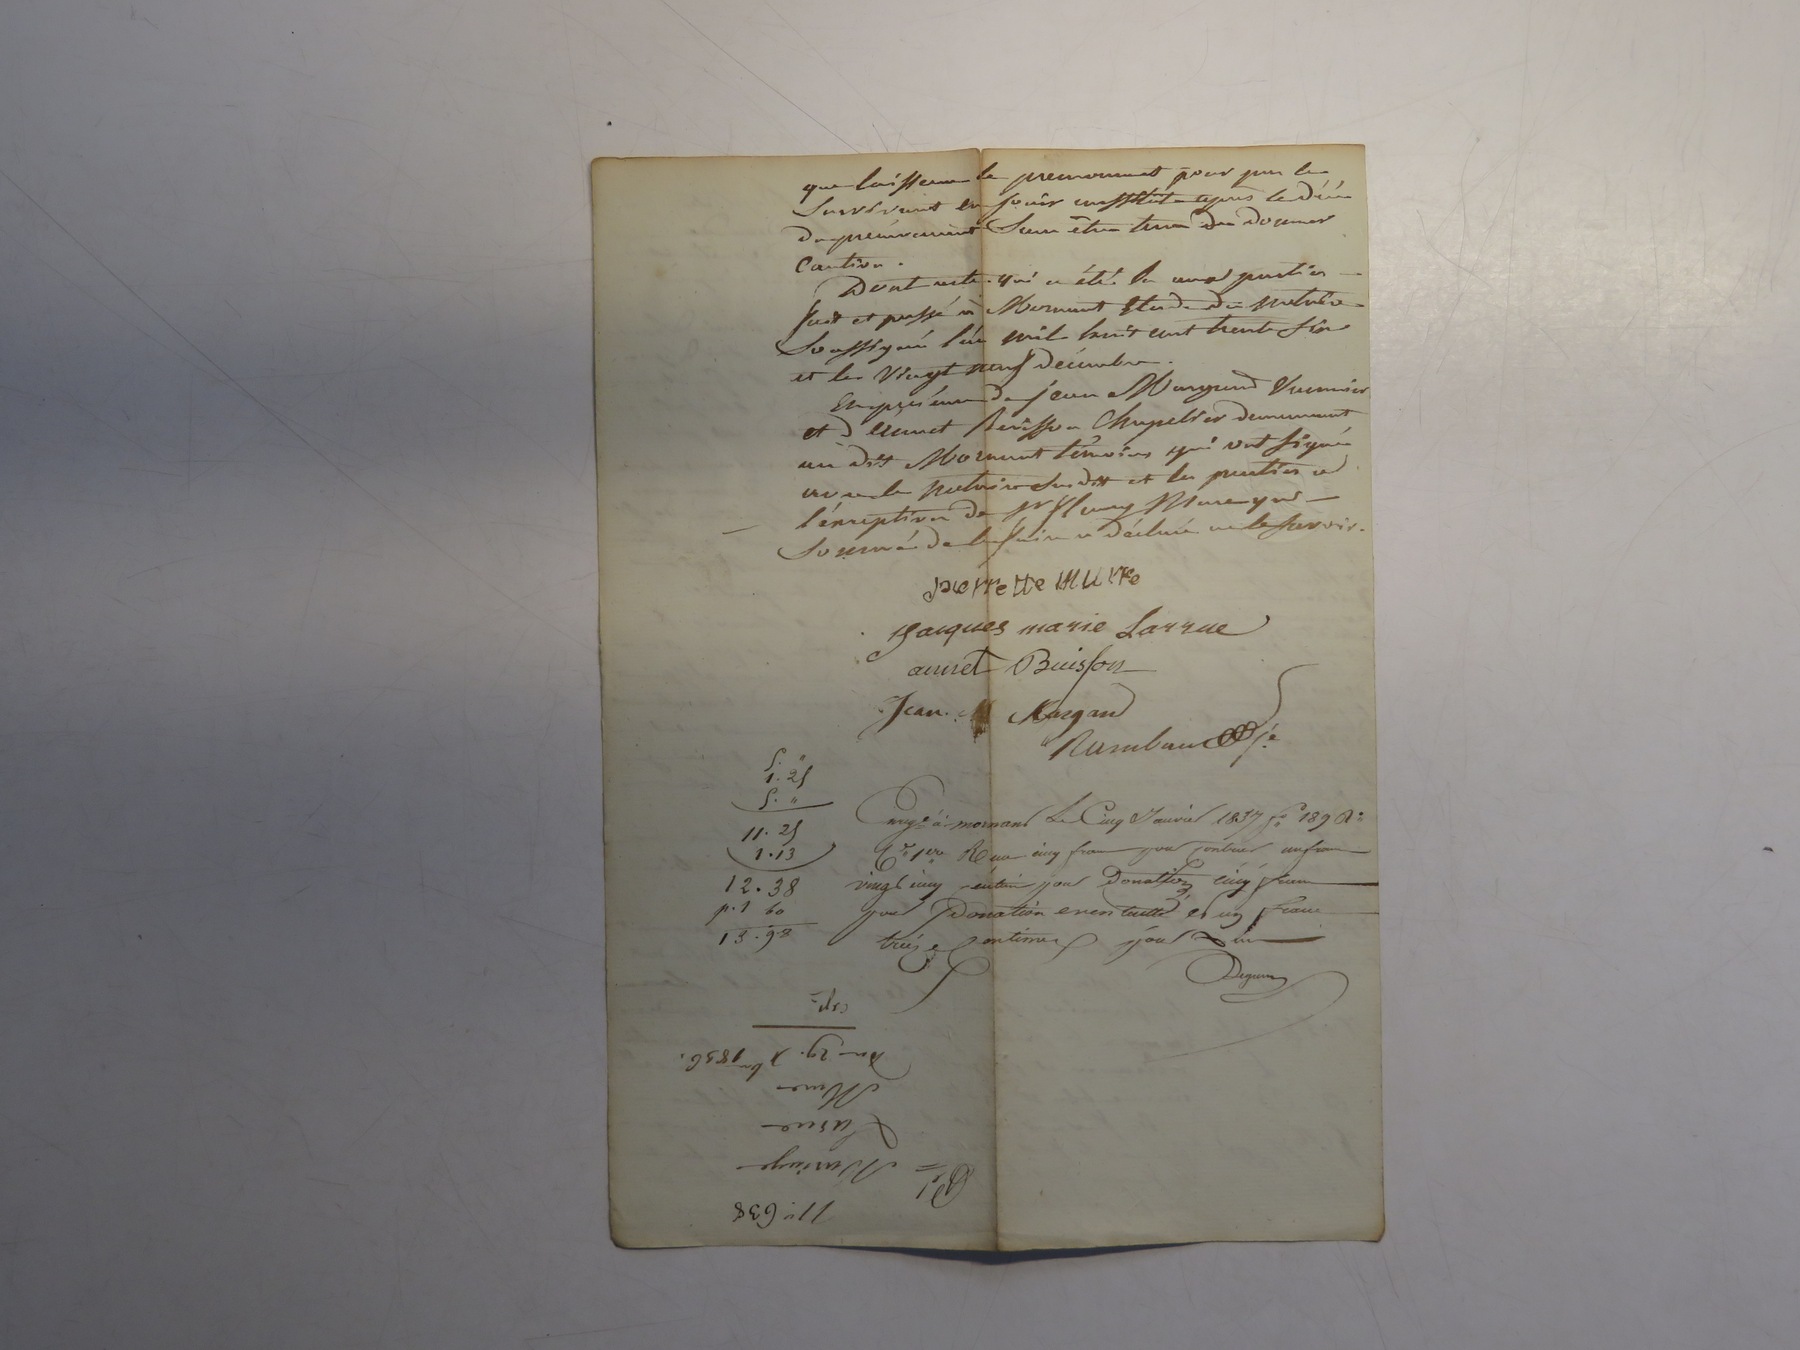 que laissera le premourant pour par le
survivant en jouir ensuite après le décès
du prémourant sans être tenu de donner
caution.
Dont acte qui a été lu aux parties
fait et passé à Mornant Etude du notaire
soussigné l'an mil huit cent trente six
et le vingt neuf décembre.
En présence de jean Margand
et d'Annet Buisson Chapelier demeurant
au dit Mornant témoins qui ont signé
avec le notaire susdit et les parties à
l'exception de
sommé de le faire a déclaré ne le savoir.
pierrette Murre
Jacques marie Larrue
annet Buisson
Jean. M Margand
Rambaud
5. "
1. 25
5. "
11. 25
1. 13
12. 38
p. 1 60
13. 98
Enregé à mornant Le Cinq Janvier 1837 fo 189
Reçu cinq francs pour contrat un franc
vingt cinq centimes pour Donation cinq francs
pour Donation eventuelle et un franc
treize centimes pour
N° 638
Mariage
Larue
Mure
Du 29. Xbre 1836.
expé